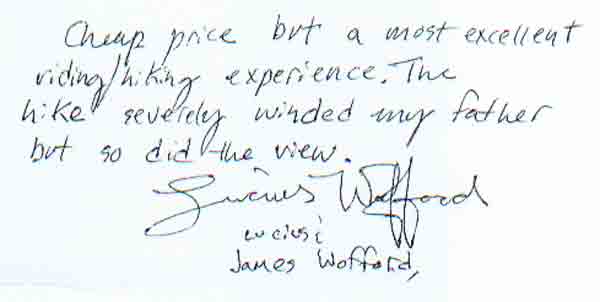 Cheap price but a most excellent
riding/hiking experience. The
hike severely winded my father
but so did the view.
Lucius Wofford
Lucius &
James Wofford,